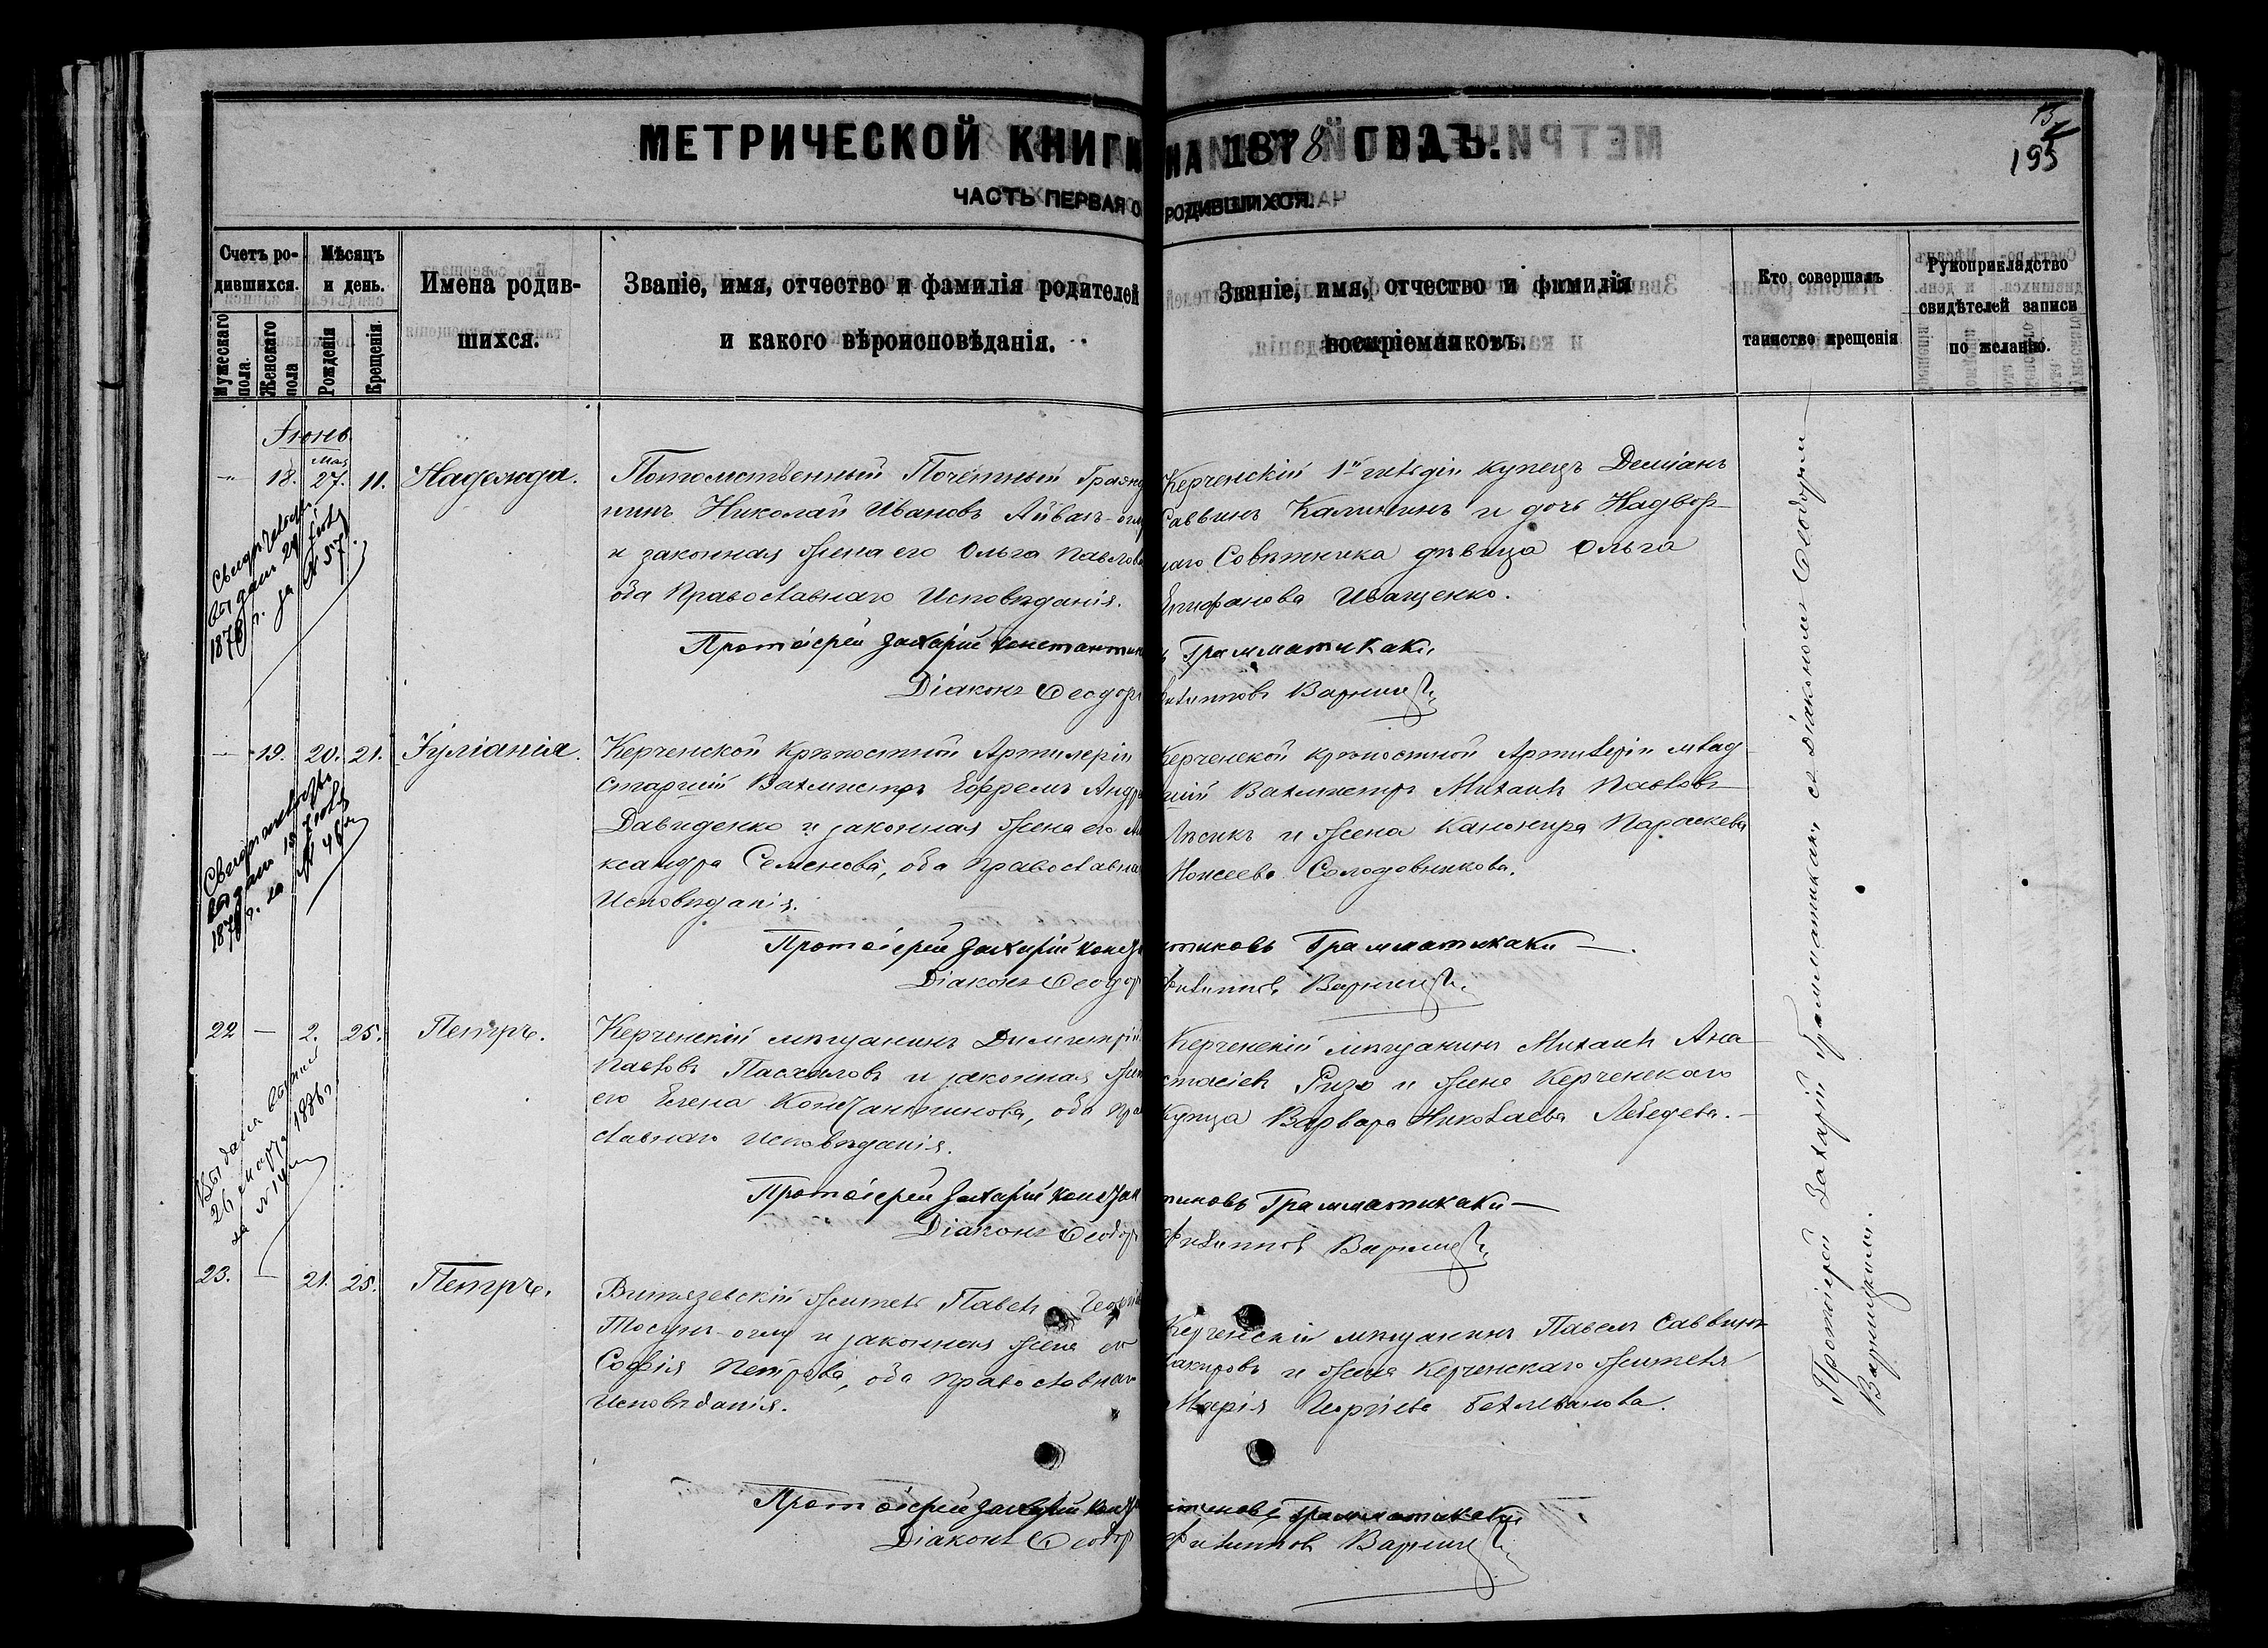 МЕТРИЧЕСКОЙ КНИГИ НА 1878 ГОДЪ.
15
195
ЧАСТЬ ПЕРВАЯ О РОДИВШИХСЯ.
Счетъ ро-
дившихся.
Мужескаго пола
Женскаго пола
Мѣсяцъ
и день.
Рожденія
Крещенія
Имена родив-
шихся.
Званіе, имя, отчество и фамилія родителей
и какого вѣроисповѣданія.
Званіе, имя, отчество и фамилія
воспріемниковъ.
Кто совершалъ
таинство крещенія
Рукоприкладство
свидѣтелей записи
по желанію.
Іюнь
Мая
18. 27. 11. Надежда.
Потомственный Почетный Гражд
нинъ Николай Ивановъ Айвазъ-оглу
и законная жена его Ольга Павлова
оба Православнаго Исповѣданія.
Керченскій 1й гильдіи купецъ Деміанъ
Саввинъ Калининъ и дочь Надвор-
наго Совѣтника дѣвица Ольга
Епифанова Иващенко.
Протоіерей Захарій Константиновъ Грамматикаки
Діаконъ Ѳеодоръ Филипповъ
19. 20. 21. Іуліанія.
Керченской Крѣпостной Артилеріи
Старшій Вахмистръ Ефремъ Андр
Давиденко и законная жена его Але
ксандра Семенова, оба Православна
Исповѣданія.
Керченской крѣпостной Артилеріи млад
шій Вахмистръ Михаилъ Павловъ
Лѣсикъ и жена Канонира Параскева
Моисеева Солодовникова.
Протоіерей Захарій Константиновъ Грамматикаки
Діаконъ Ѳеодоръ Филипповъ
22 — 2. 25. Петръ.
Керченскій мѣщанинъ Димитрій
Павловъ Пасхаловъ и законная жена
его Елена Константинова, оба Пра
славнаго Исповѣданія.
Керченскій мѣщанинъ Михаилъ Ана
стасіевъ Ризо и жена Керченскаго
Купца Варвара Николаева Лебедева.
Протоіерей Захарій Константиновъ Грамматикаки
Діаконъ Ѳеодоръ Филипповъ
23. — 21. 25. Петръ.
Витязевскій житель Павелъ
Тосунъ-оглу и законная жена его
Софія Петрова, оба Православнаго
Исповѣданія.
Керченскій мѣщанинъ Павелъ Саввинъ
и жена Керченскаго жителя
Марія Георгіева
Протоіерей Захарій Константиновъ Грамматикаки
Діаконъ Ѳеодоръ Филипповъ
Свидѣтельство
выдано 29 Іюля
1878 г. за № 57
Свидѣтельство
выдано
1878 г. за №
Выдана
26 марта 1886 г.
за №
Протоіерей Захарій Грамматикаки съ діакономъ Ѳеодоромъ